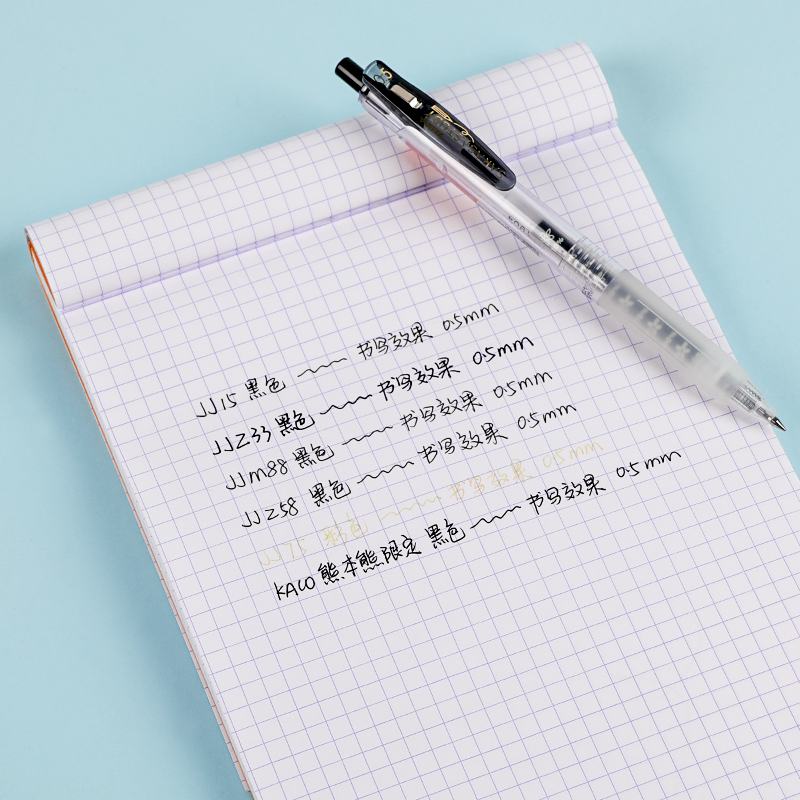 0.5
JJ15 黑色 ~~~ 书写效果 0.5mm
JJZ33 黑色 ~~~ 书写效果 0.5mm
JJM88 黑色 ~~~ 书写效果 0.5mm
JJZ58 黑色 ~~~ 书写效果 0.5mm
JJ75 彩色 ~~~ 书写效果 0.5mm
KACO 熊本熊限定 黑色 ~~~ 书写效果 0.5mm